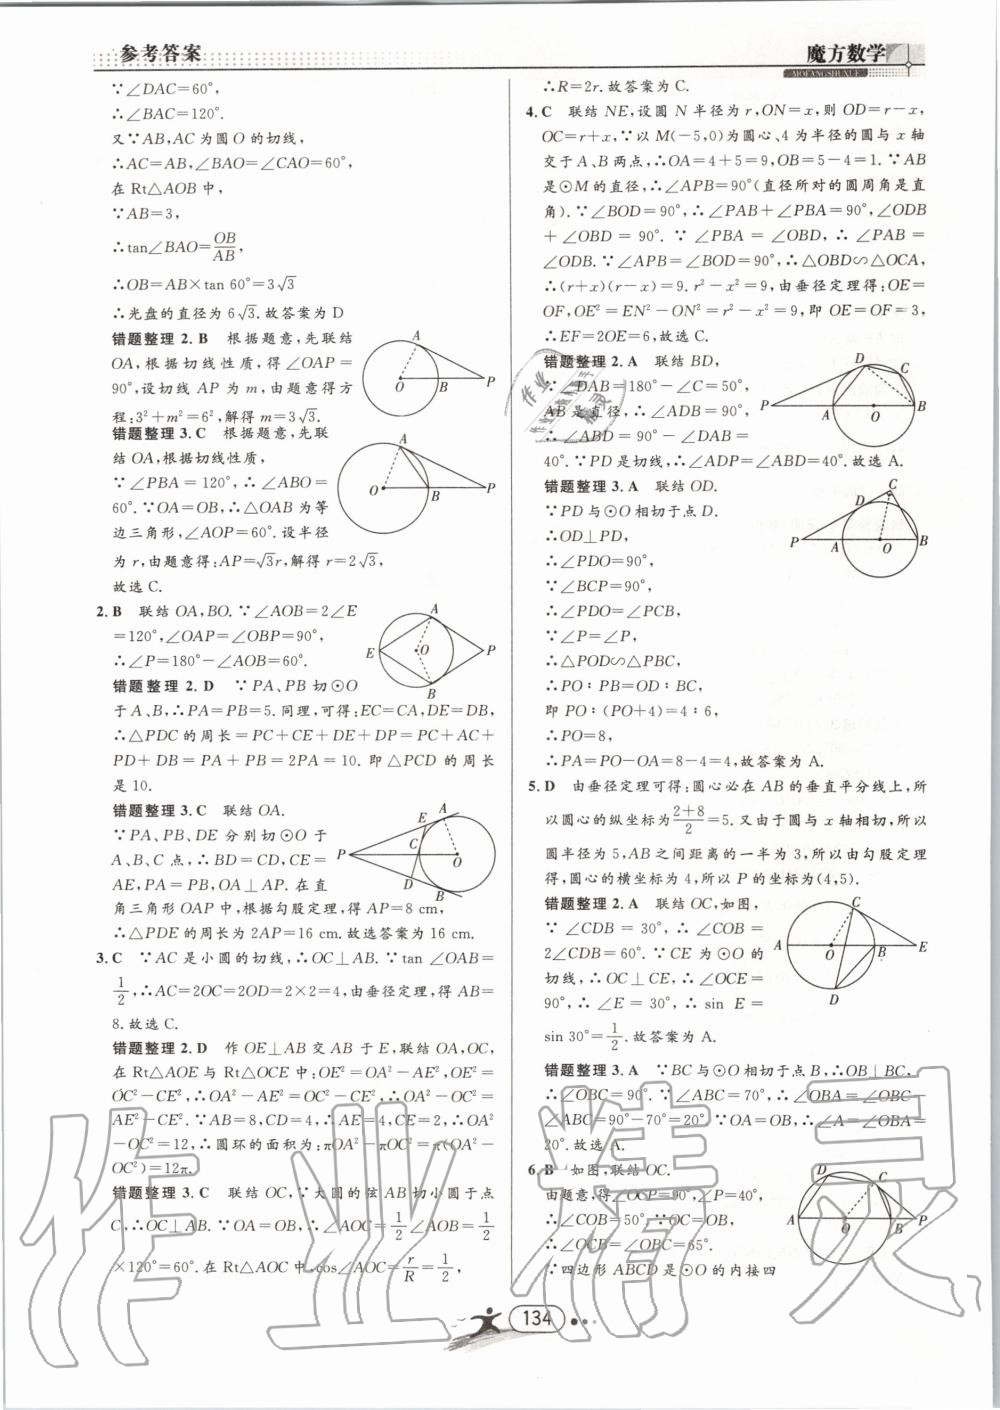 参考答案
魔方数学
MOFANGSHUXUE
∵∠DAC=60°,
∴∠BAC=120°.
又∵AB,AC 为圆 O 的切线,
∴AC=AB,∠BAO=∠CAO=60°,
在 Rt△AOB 中,
∵AB=3,
∴tan∠BAO=OB/AB,
∴OB=AB×tan 60°=3√3
∴光盘的直径为 6√3.故答案为 D
错题整理 2. B 根据题意,先联结
OA,根据切线性质,得∠OAP=
90°,设切线 AP 为 m,由题意得方
程:3²+m²=6²,解得 m=3√3.
错题整理 3. C 根据题意,先联
结 OA,根据切线性质,
∵∠PBA=120°,∴∠ABO=
60°.∵OA=OB,∴△OAB 为等
边三角形,∠AOP=60°.设半径
为 r,由题意得:AP=√3r,解得 r=2√3,
故选 C.
2. B 联结 OA,BO.∵∠AOB=2∠E
=120°,∠OAP=∠OBP=90°,
∴∠P=180°-∠AOB=60°.
错题整理 2. D ∵PA、PB 切⊙O
于 A、B,∴PA=PB=5.同理,可得:EC=CA,DE=DB,
∴△PDC 的周长=PC+CE+DE+DP=PC+AC+
PD+DB=PA+PB=2PA=10.即△PCD 的周长
是 10.
错题整理 3. C 联结 OA.
∵PA、PB、DE 分别切⊙O 于
A、B、C 点,∴BD=CD,CE=
AE,PA=PB,OA⊥AP.在直
角三角形 OAP 中,根据勾股定理,得 AP=8 cm,
∴△PDE 的周长为 2AP=16 cm.故选答案为 16 cm.
3. C ∵AC 是小圆的切线,∴OC⊥AB.∵tan∠OAB=
1/2,∴AC=2OC=2OD=2×2=4,由垂径定理,得 AB=
8.故选 C.
错题整理 2. D 作 OE⊥AB 交 AB 于 E,联结 OA,OC,
在 Rt△AOE 与 Rt△OCE 中:OE²=OA²-AE²,OE²=
OC²-CE²,∴OA²-AE²=OC²-CE²,∴OA²-OC²=
AE²-CE².∵AB=8,CD=4,∴AE=4,CE=2,∴OA²
-OC²=12,∴圆环的面积为:πOA²-πOC²=π(OA²-
OC²)=12π.
错题整理 3. C 联结 OC,∵大圆的弦 AB 切小圆于点
C,∴OC⊥AB.∵OA=OB,∴∠AOC=1/2∠AOB=1/2
×120°=60°.在 Rt△AOC 中,cos∠AOC=r/R=1/2,
∴R=2r.故答案为 C.
4. C 联结 NE,设圆 N 半径为 r,ON=x,则 OD=r-x,
OC=r+x,∵以 M(-5,0)为圆心、4 为半径的圆与 x 轴
交于 A、B 两点,∴OA=4+5=9,OB=5-4=1.∵AB
是⊙M 的直径,∴∠APB=90°(直径所对的圆周角是直
角).∵∠BOD=90°,∴∠PAB+∠PBA=90°,∠ODB
+∠OBD=90°.∵∠PBA=∠OBD,∴∠PAB=
∠ODB.∵∠APB=∠BOD=90°,∴△OBD∽△OCA,
∴(r+x)(r-x)=9.r²-x²=9,由垂径定理得:OE=
OF,OE²=EN²-ON²=r²-x²=9,即 OE=OF=3,
∴EF=2OE=6,故选 C.
错题整理 2. A 联结 BD,
∵∠DAB=180°-∠C=50°,
AB 是直径,∴∠ADB=90°,
∴∠ABD=90°-∠DAB=
40°.∵PD 是切线,∴∠ADP=∠ABD=40°.故选 A.
错题整理 3. A 联结 OD.
∵PD 与⊙O 相切于点 D.
∴OD⊥PD,
∴∠PDO=90°,
∵∠BCP=90°,
∴∠PDO=∠PCB,
∵∠P=∠P,
∴△POD∽△PBC,
∴PO:PB=OD:BC,
即 PO:(PO+4)=4:6,
∴PO=8,
∴PA=PO-OA=8-4=4,故答案为 A.
5. D 由垂径定理可得:圆心必在 AB 的垂直平分线上,所
以圆心的纵坐标为(2+8)/2=5.又由于圆与 x 轴相切,所以
圆半径为 5,AB 之间距离的一半为 3,所以由勾股定理
得,圆心的横坐标为 4,所以 P 的坐标为(4,5).
错题整理 2. A 联结 OC,如图,
∵∠CDB=30°,∴∠COB=
2∠CDB=60°.∵CE 为⊙O 的
切线,∴OC⊥CE,∴∠OCE=
90°,∴∠E=30°,∴sin E=
sin 30°=1/2.故答案为 A.
错题整理 3. A ∵BC 与⊙O 相切于点 B,∴OB⊥BC,
∴∠OBC=90°.∵∠ABC=70°,∴∠OBA=∠OBC-
∠ABC=90°-70°=20°.∵OA=OB,∴∠A=∠OBA=
20°.故选 A.
6. B 如图,联结 OC.
由题意,得∠OCP=90°,∠P=40°,
∴∠COB=50°.∵OC=OB,
∴∠OCB=∠OBC=65°.
∵四边形 ABCD 是⊙O 的内接四
134
作业精灵